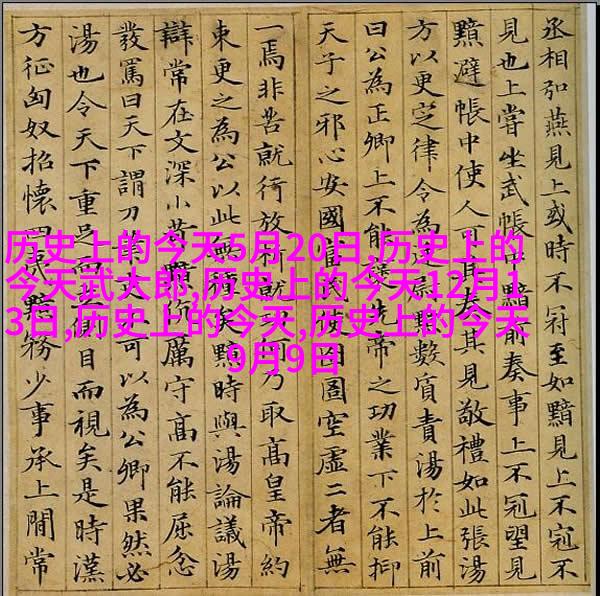 丞相弘燕見上或時不冠至如黯見上不冠不
見也上嘗坐武帳中黯前奏事上不冠望見
黯避帳中使人可其奏其見敬禮如此張湯
方以更定律令為廷尉黯數質責湯於上前
曰公為正卿上不能先帝之功業下不能抑
天子之邪心安國富民使囹圄空虛二者無
一焉非苦就行放析就何乃取高皇帝約
束更之為公以此無種矣黯時與湯論議湯
辯常在文深小苛黯伉厲守高不能屈忿
發罵曰天下謂刀筆吏不可以為公卿果然必
湯也令天下重足而立側目而視矣是時漢
方征匈奴招懷四夷黯務少事承上間常
历史上的今天5月20日,历史上的
今天武大郎,历史上的今天12月1
3日,历史上的今天,历史上的今天
9月9日